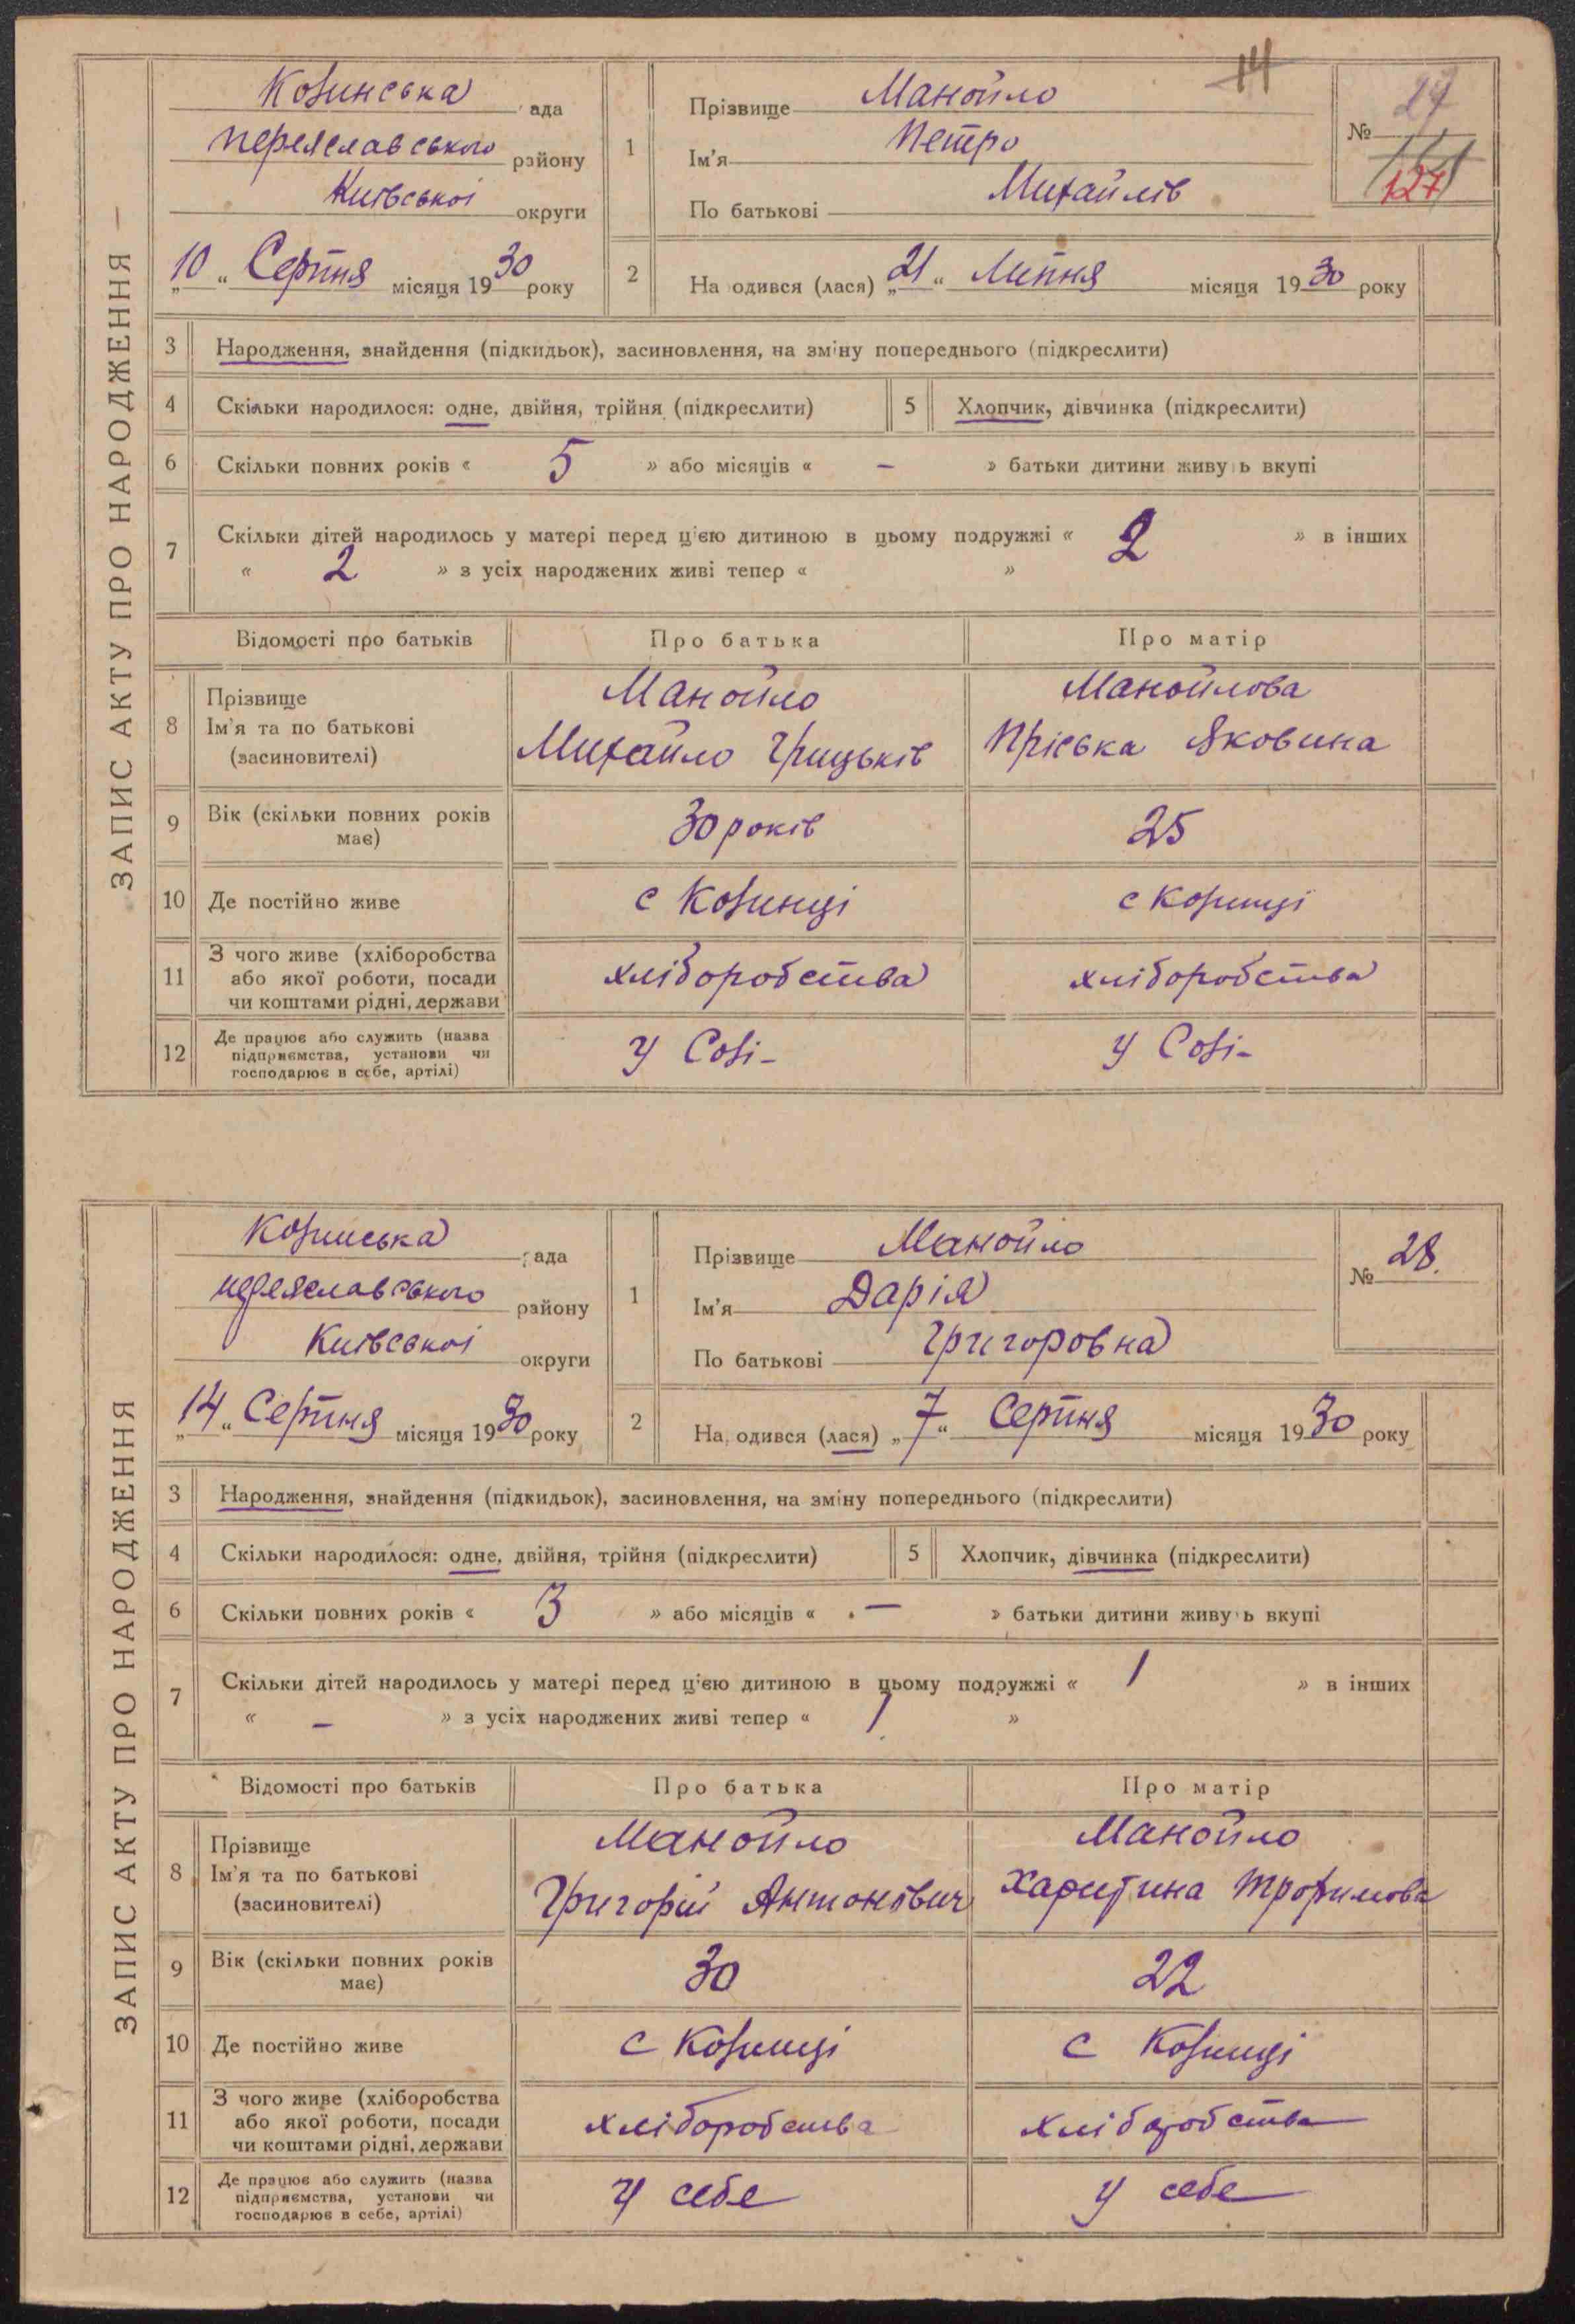 ЗАПИС АКТУ ПРО НАРОДЖЕННЯ —
Козинська ада
Переяславського району
Київської округи
„10“ Серпня місяця 1930 року
14
1 Прізвище Манойло
Ім'я Петро
По батькові Михайлів
№ 27
127
2 На одився (лася) „21“ Липня місяця 1930 року
3 Народження, знайдення (підкидьок), засиновлення, на зміну попереднього (підкреслити)
4 Скільки народилося: одне, двійня, трійня (підкреслити) 5 Хлопчик, дівчинка (підкреслити)
6 Скільки повних років « 5 » або місяців « – » батьки дитини живу ь вкупі
7 Скільки дітей народилось у матері перед ц'єю дитиною в цьому подружжі « 2 » в інших
« 2 » з усіх народжених живі тепер « »
Відомості про батьків Про батька Про матір
8 Прізвище Ім'я та по батькові (засиновителі)
Манойло Манойлова
Михайло Грицьків Пріська Яковина
9 Вік (скільки повних років має) 30 років 25
10 Де постійно живе с Козинці с Козинці
11 З чого живе (хліборобства або якої роботи, посади чи коштами рідні, держави хліборобства хліборобства
12 Де працює або служить (назва підприємства, установи чи господарює в себе, артілі) у Созі- у Созі-
ЗАПИС АКТУ ПРО НАРОДЖЕННЯ
Козинська ада
Переяславського району
Київської округи
„14“ Серпня місяця 1930 року
1 Прізвище Манойло
Ім'я Дарія
По батькові Григоровна
№ 28.
2 На одився (лася) „7“ Серпня місяця 1930 року
3 Народження, знайдення (підкидьок), засиновлення, на зміну попереднього (підкреслити)
4 Скільки народилося: одне, двійня, трійня (підкреслити) 5 Хлопчик, дівчинка (підкреслити)
6 Скільки повних років « 3 » або місяців « – » батьки дитини живу ь вкупі
7 Скільки дітей народилось у матері перед ц'єю дитиною в цьому подружжі « 1 » в інших
« – » з усіх народжених живі тепер « 1 »
Відомості про батьків Про батька Про матір
8 Прізвище Ім'я та по батькові (засиновителі)
Манойло Манойло
Григорій Антонович Харитина Трофимова
9 Вік (скільки повних років має) 30 22
10 Де постійно живе с Козинці с Козинці
11 З чого живе (хліборобства або якої роботи, посади чи коштами рідні, держави хліборобства хліборобства
12 Де працює або служить (назва підприємства, установи чи господарює в себе, артілі) у себе у себе